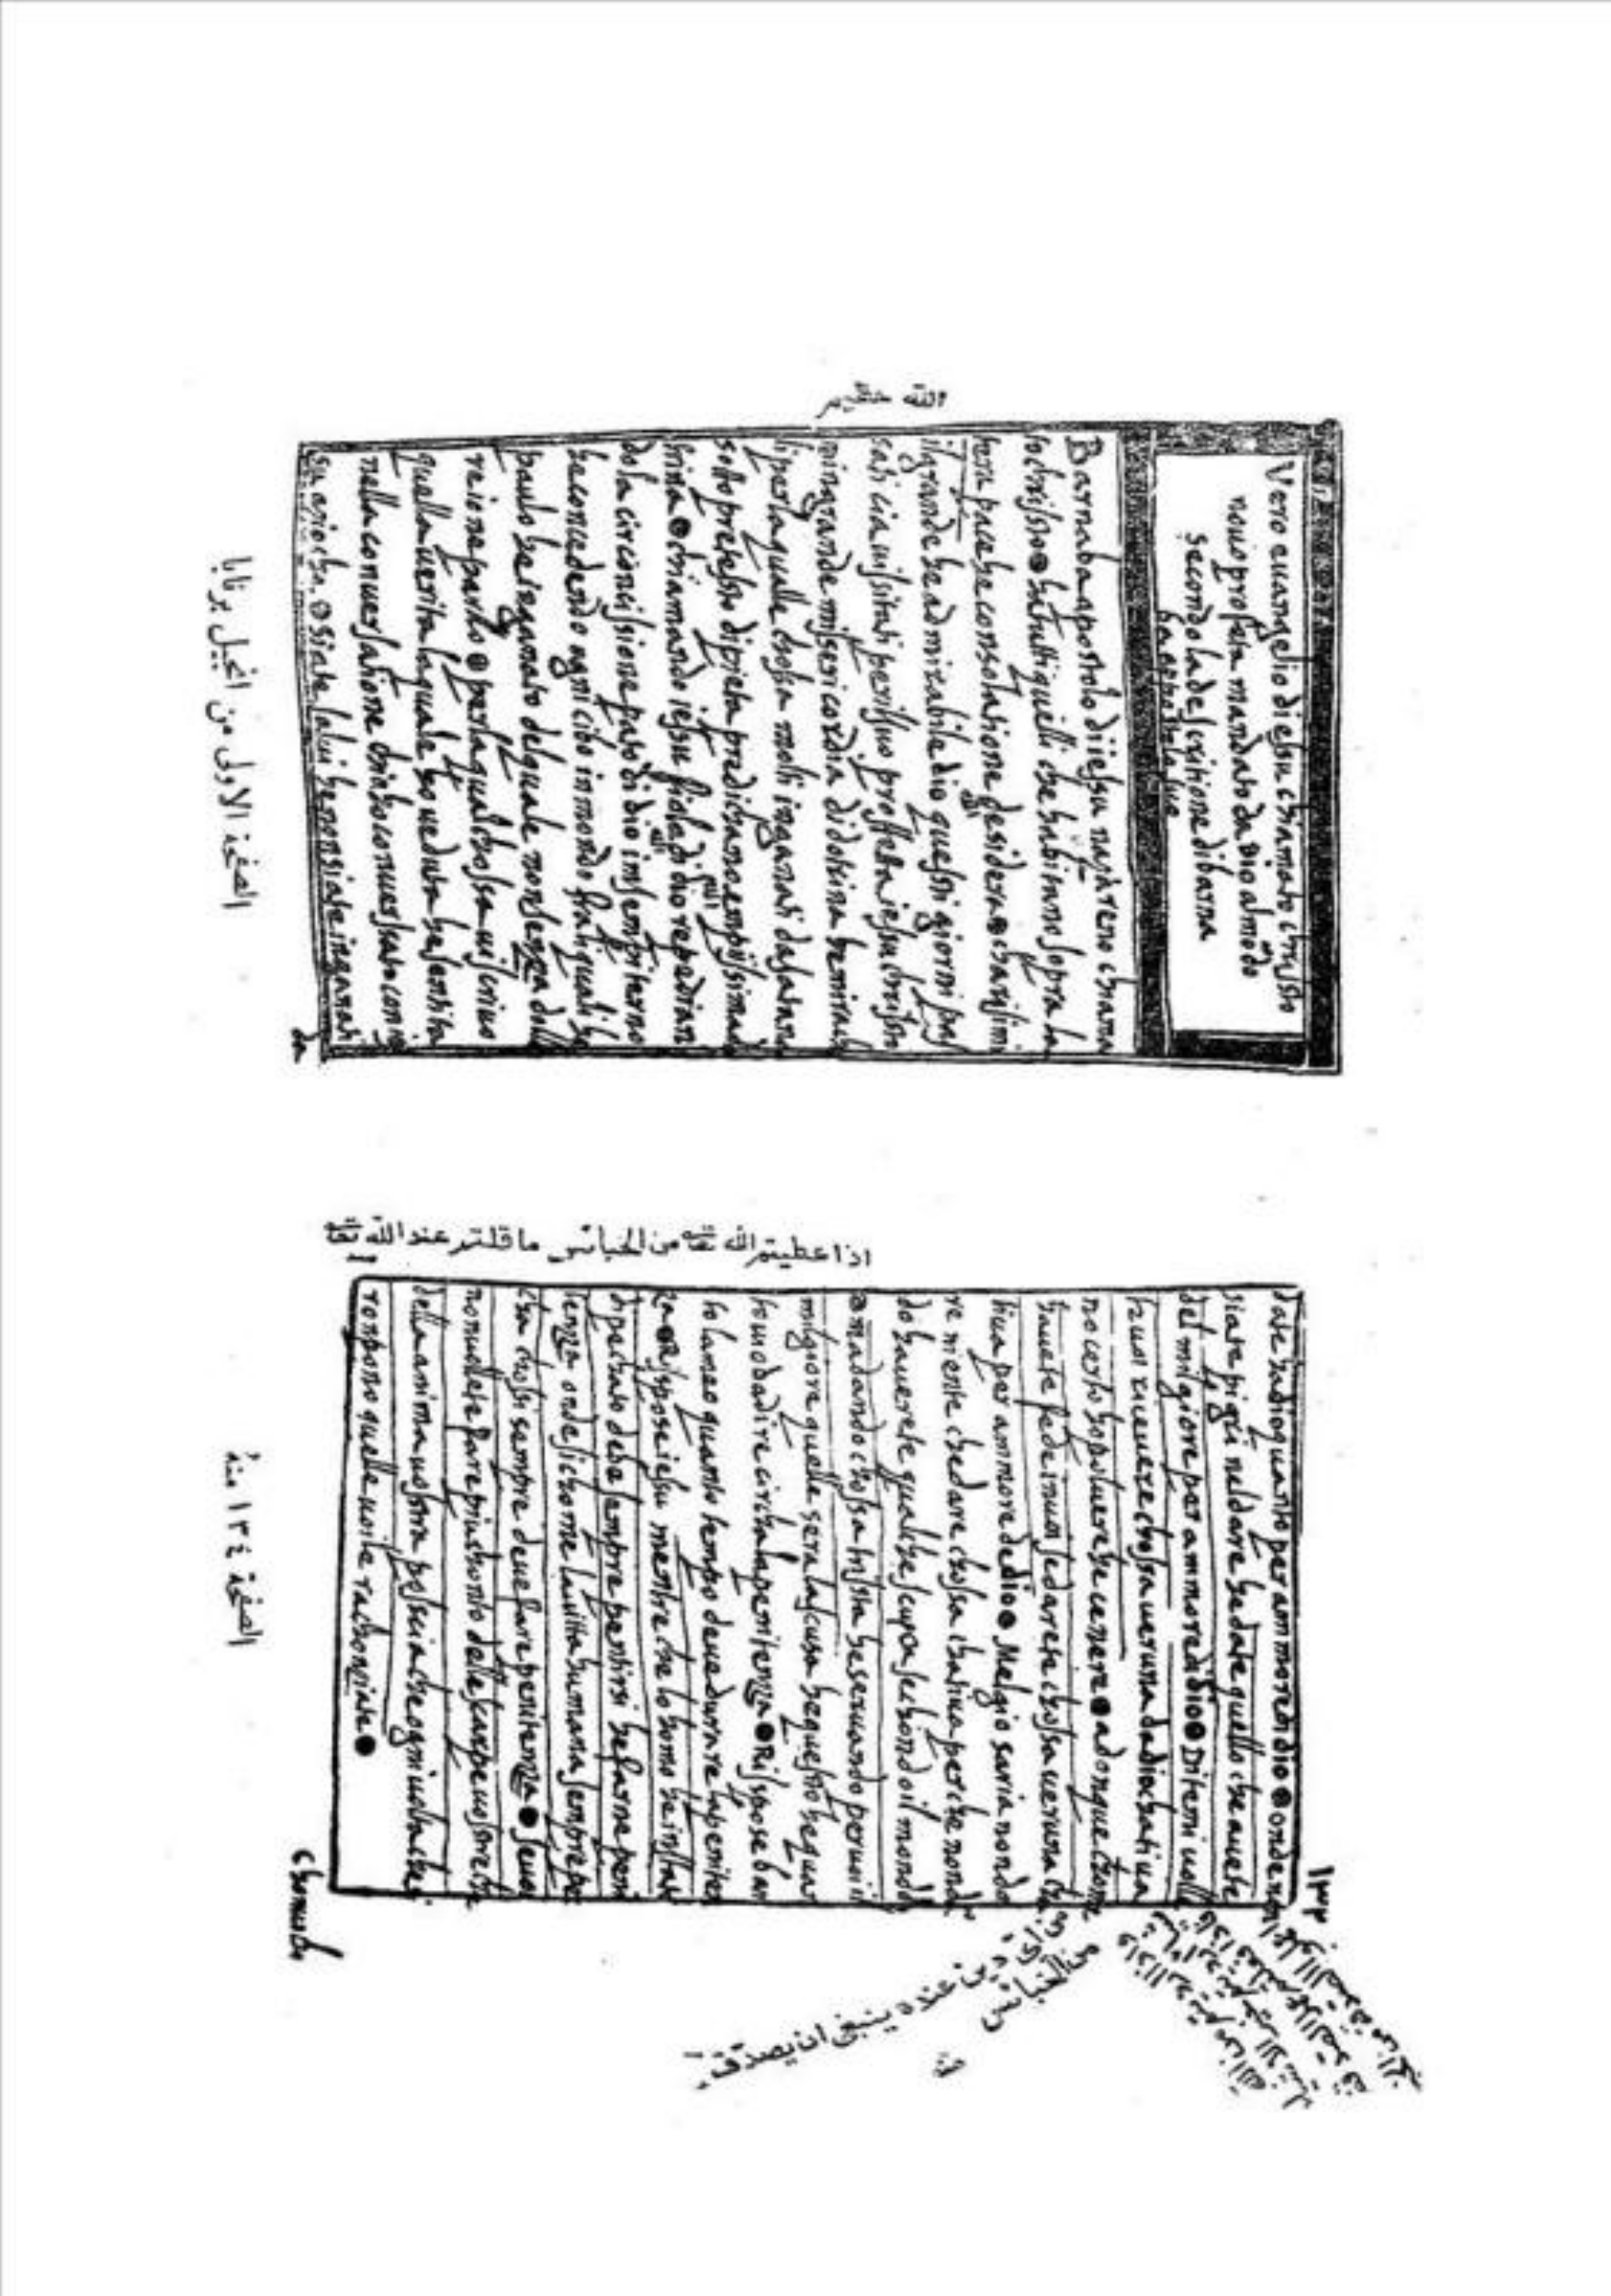 الله عظيم
Vero euangelio di iessu chiamato chrissto
nouo profeta mandato da Dio al mõdo
secondo la descritione di barna
ba appostolo suo
Barnaba apostolo di iesu nazareno chiama
to chrissto ha tutti quelli che habitano sopra la
terra pace he consolatione dessidera charissimi
il grande he admirabile dio questi giorni pas
sati cia uissitati per il suo proffeta iessu chrissto
in grande misericordia di dotrina he miracho
li per laqualle chossa molti inganati da satana
sotto pretessto di pieta predichano empissima do
trina chiamando iessu fiolo di dio repudian
do la circoncissione pato di dio in sempiterno
he concedendo ogni cibo inmondo fra li quali he
paulo he inganato del quale non senza dollo
re io ne parlo per laqual chossa ui scriuo
quella uerita laquale ho ueduta he sentita
nella conuersatione chio ho conuersato con ie
su azioche siate salui he non siate inganati
da
الصفحة الاولى من انجيل برنابا
اذا عطيتم الله تعالى من الخبائس ما قلتم عند الله تعالى
١٣٣
date ha dio quanto per ammore di dio onde
siate pigri nel dare he date quello che auete
del milgiore per ammore di dio Ditemi uolle
te uoi riceuere chossa ueruna da dio chatiua
no certo ho poluere he cenere adonque chome
hauete fede in uoi se darete chossa ueruna cha
tiua per ammore de dio Melgio saria non da
re niente che dare chossa chatiua perche non da
do hauerete qualche scussa sechondo il mondo
ma dando chossa trissta he seruando per uoi il
milgiore quale sera la scusa he questo he quan
to ui ho da dire circha la penitenza Risspose bar
to lameo quanto tempo deue durrare la peniten
za Risspose iesu mentre che lo homo he in stato
di pechato debe sempre pentirsi he farne peni
tenza onde sichome la uitta humana sempre pe
cha chossi sempre deue fare penitenza se uoi
non uolete fare piu chonto delle scarpe uosstre che
della anima uosstra possia che ogni uolta che si
rompono quelle uoi le rachonziate
chonuoch
في الخبائس
دين عنده ينبغي ان يصدق
الصفحة ١٣٤ منه